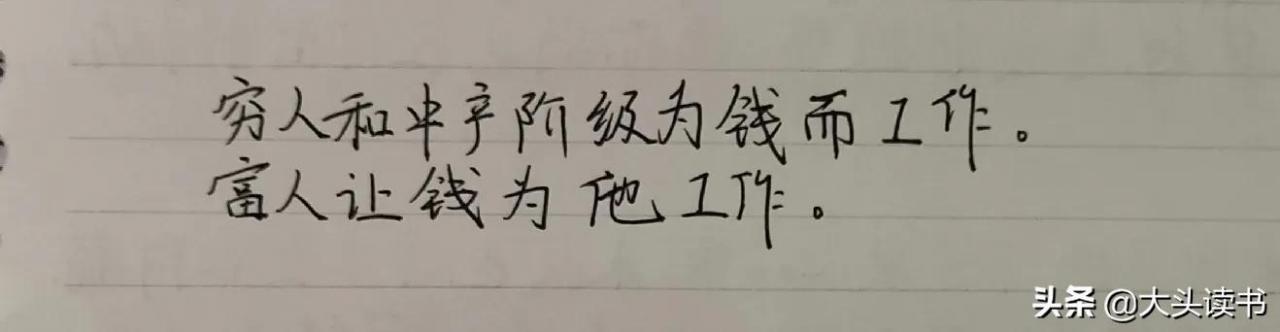 穷人和中产阶级为钱而工作。
富人让钱为他工作。
头条 @大头读书